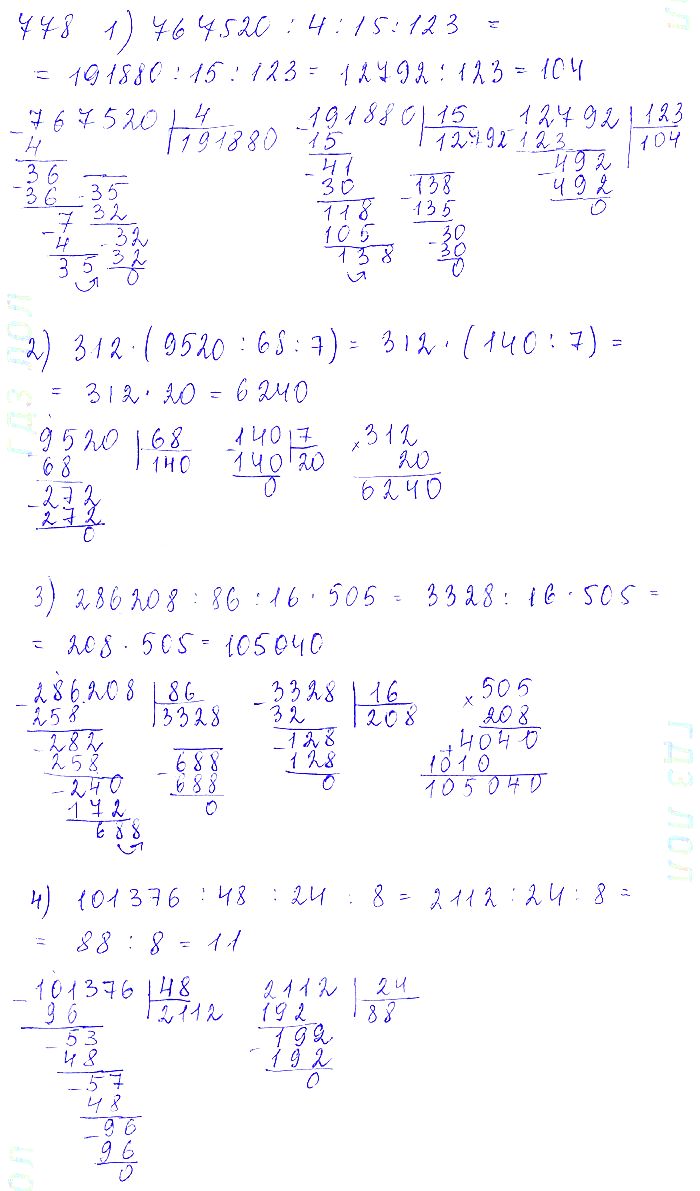 778 1) 767520 : 4 : 15 : 123 =
= 191880 : 15 : 123 = 12792 : 123 = 104
-767520 | 4 -191880 | 15 12792 | 123
4 | 191880 15 | 12792 123 | 104
36 -41 -492
-36 -35 30 -138 492
-7 32 118 -135 0
4 -32 105 -30
35 32 138 30
0 0
2) 312 · (9520 : 68 : 7) = 312 · (140 : 7) =
= 312 · 20 = 6240
-9520 | 68 -140 | 7 × 312
68 | 140 140 | 20 20
-272 0 6240
272
0
3) 286208 : 86 : 16 · 505 = 3328 : 16 · 505 =
= 208 · 505 = 105040
-286208 | 86 -3328 | 16 × 505
258 | 3328 32 | 208 208
-282 -688 -128 +4040
258 688 128 1010
-240 0 0 105040
172
688
4) 101376 : 48 : 24 : 8 = 2112 : 24 : 8 =
= 88 : 8 = 11
-101376 | 48 2112 | 24
96 | 2112 192 | 88
-53 -192
48 192
-57 0
48
-96
96
0
гдз лол
гдз лол